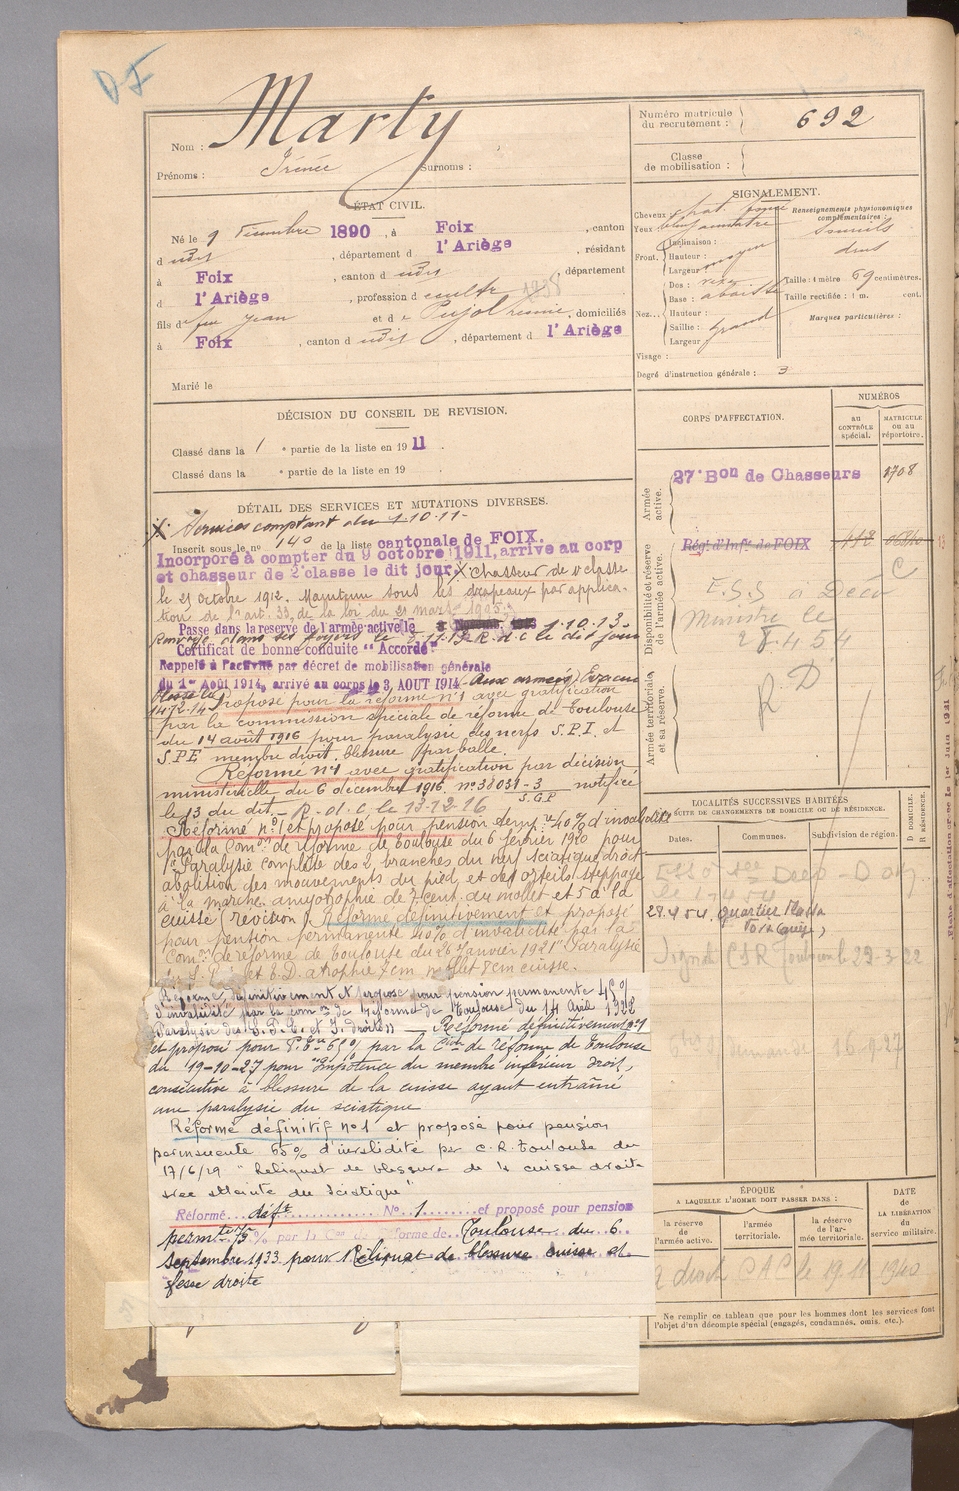 DF
Nom : Marty
Prénoms : Irénée Surnoms :
ÉTAT CIVIL.
Né le 9 Décembre 1890, à Foix, canton
dudit, département d l'Ariège, résidant
à Foix, canton dudit, département
d l'Ariège, profession d cult
fils de feu Jean et de Pujol, domiciliés
à Foix, canton dudit, département d l'Ariège
Marié le
DÉCISION DU CONSEIL DE REVISION.
Classé dans la 1e partie de la liste en 1911.
Classé dans la e partie de la liste en 19 .
DÉTAIL DES SERVICES ET MUTATIONS DIVERSES.
X: Services comptant du 1-10-11-
Inscrit sous le no 140 de la liste cantonale de FOIX.
Incorporé à compter du 9 octobre 1911, arrive au corp
et chasseur de 2e classe le dit jour. X Chasseur de 1e classe
le 25 octobre 1912. Maintenu sous les drapeaux par applica-
tion de l'art. 33, de la loi du 21 mars 1905.
Passé dans la réserve de l'armée active le 1-10-13-
Renvoyé dans ses foyers le 8-11-13. R.d.C le dit jour
Certificat de bonne conduite "Accordé"
Rappelé à l'activité par décret de mobilisation générale
du 1er Août 1914, arrivé au corps le 3 AOUT 1914. Aux armées) Evacué
blessé le
14-12-14 Proposé pour la réforme no 1 avec gratification
par la commission spéciale de réforme de Toulouse
du 14 août 1916 pour paralysie des nerfs S.P.I. et
S.P.E membre droit. blessure par balle.
Réformé no 1 avec gratification par décision
ministérielle du 6 décembre 1916, no 38031-3 notifiée
S.G.P
le 13 du dit - R.d.C. le 13-12-16
Réformé no 1 et proposé pour pension temp.re 40% d'invalidité
par la Com.on de réforme de Toulouse du 6 février 1920 pour
1o Paralysie complète des 2 branches du nerf sciatique droit
abolition des mouvements du pied et des orteils steppage
à la marche amyotrophie de 7 cent. du mollet et 5 à la
cuisse (revision). Réformé définitivement et proposé
pour pension permanente 40% d'invalidité par la
Com.on de réforme de Toulouse du 26 Janvier 1921 "Paralysie
et E.D. atrophie 7cm mollet 8cm cuisse.
Réformé définitivement et proposé pour pension permanente 45%
d'invalidité par la com.on de réforme de Toulouse du 14 Avril 1922
Paralysie des S.P.E. et I. droits" — Réformé définitivement no 1
et proposé pour P. 65% par la C.on de réforme de Toulouse
du 19-10-27 pour "Impotence du membre inférieur droit,
consécutive à blessure de la cuisse ayant entraîné
une paralysie du sciatique
Réformé définitif no 1 et proposé pour pension
permanente 65% d'invalidité par C.R. Toulouse du
17/6/29 "Reliquat de blessure de la cuisse droite
avec atteinte du Sciatique"
Réformé déft No 1 et proposé pour pension
permte 75% par la Con de réforme de Toulouse du 6
septembre 1933 pour Reliquat de blessure cuisse et
fesse droite
Numéro matricule
du recrutement : 692
Classe
de mobilisation :
SIGNALEMENT.
Cheveux : chat. foncé
Yeux : bleu jaunâtre
Front. Inclinaison :
Hauteur : moyen
Largeur :
Nez... Dos :
Base : abaissée
Hauteur :
Saillie : grand
Largeur
Visage :
Renseignements physionomiques
complémentaires :
Sourcils
Taille : 1 mètre 69 centimètres.
Taille rectifiée : 1 m. cent.
Marques particulières :
Degré d'instruction générale : 3
CORPS D'AFFECTATION.
NUMÉROS
AU CONTRÔLE spécial.
MATRICULE ou au répertoire.
Armée active.
27e Bon de Chasseurs 1708
Disponibilité et réserve de l'armée active.
Régt d'Infie de FOIX
E.S.S à Déco
Ministre le
28.4.54
Armée territoriale et sa réserve.
R D
LOCALITÉS SUCCESSIVES HABITÉES
PAR SUITE DE CHANGEMENTS DE DOMICILE OU DE RÉSIDENCE.
Dates. Communes. Subdivision de région. D DOMICILE. R RÉSIDENCE.
le 1-4-54
28.4.54. quartier
Signalé CSR Toulouse le 29-3-22
16-9-27
ÉPOQUE
A LAQUELLE L'HOMME DOIT PASSER DANS :
la réserve de l'armée active. l'armée territoriale. la réserve de l'armée territoriale.
DATE de LA LIBÉRATION du service militaire.
a droit CAC le 19.11 1940
Ne remplir ce tableau que pour les hommes dont les services font
l'objet d'un décompte spécial (engagés, condamnés, omis, etc.).